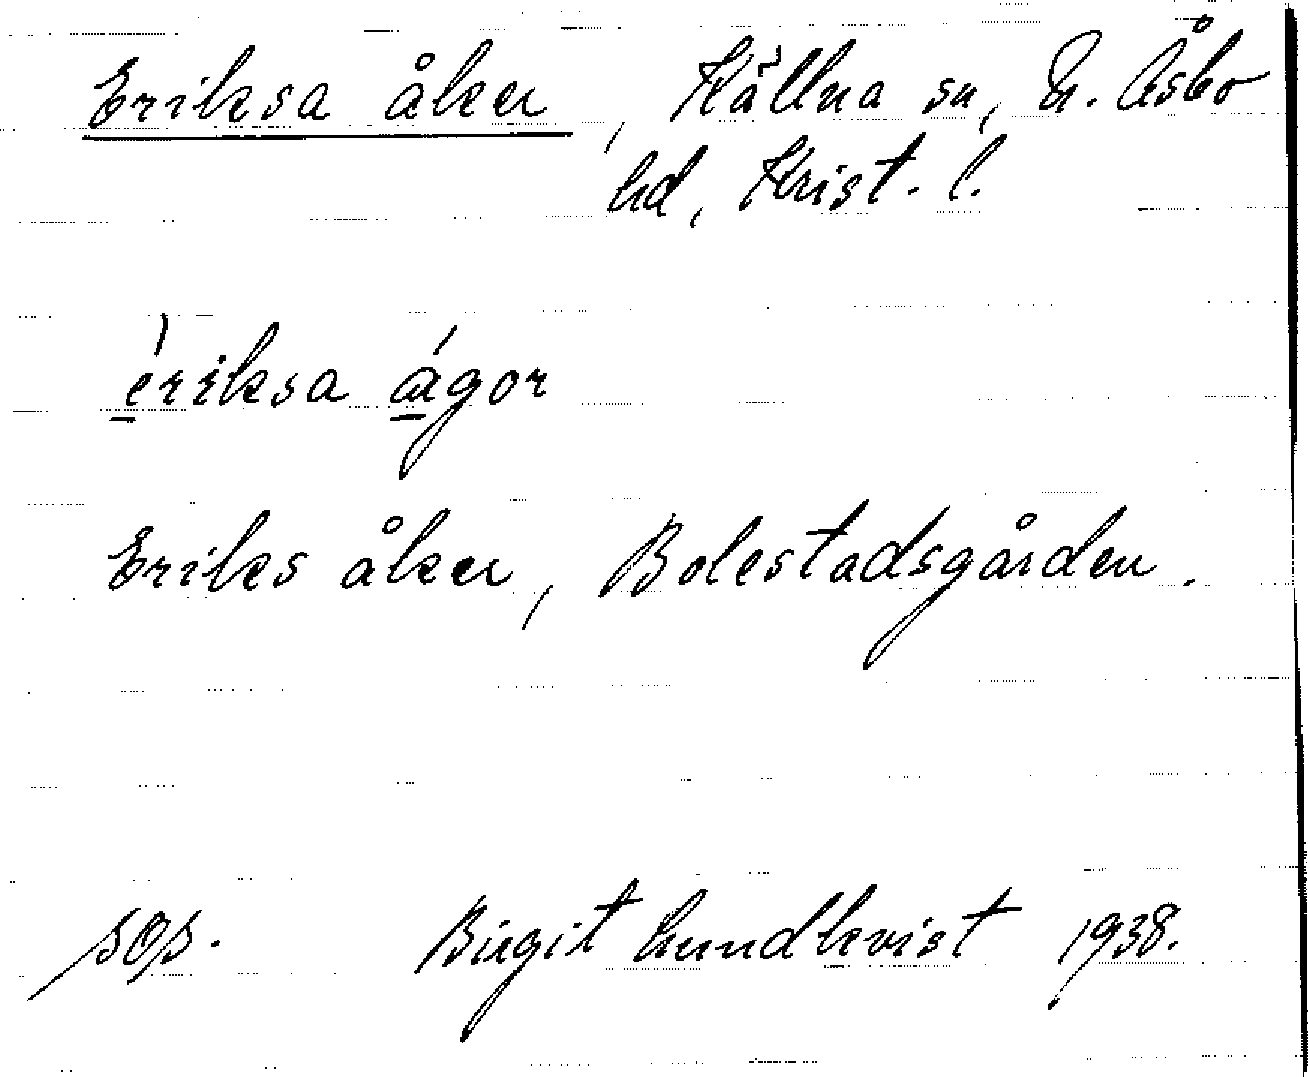 Eriksa åker, Källna sn, N. Åsbo
hd, Krist. l.
ériksa ágor
Eriks åker, Bolestadsgården.
sops. Birgit Lundkvist 1938.